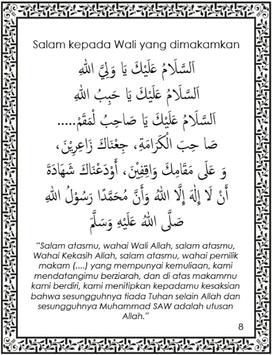 Salam kepada Wali yang dimakamkan
اَلسَّلَامُ عَلَيْكَ يَا وَلِيَّ اللهِ
اَلسَّلَامُ عَلَيْكَ يَا حَبِبُ اللهِ
اَلسَّلَامُ عَلَيْكَ يَا صَاحِبُ لْمَقَمُ.....
صَا حِبَ الْكَرَامَةِ، جِعْنَاكَ زَاعِرِيْنَ،
وَ عَلَى مَقَامِكَ وَاقِفِيْنَ، أَوْدَعْنَاكَ شَهَادَةَ
أَنْ لَا إِلٰهَ إِلَّا اللهُ وَأَنَّ مُحَمَّدًا رَسُوْلُ اللهِ
صَلَّى اللهُ عَلَيْهِ وَسَلَّمَ
"Salam atasmu, wahai Wali Allah, salam atasmu,
Wahai Kekasih Allah, salam atasmu, wahai pemilik
makam (....) yang mempunyai kemuliaan, kami
mendatangimu berziarah, dan di atas makammu
kami berdiri, kami menitipkan kepadamu kesaksian
bahwa sesungguhnya tiada Tuhan selain Allah dan
sesungguhnya Muhammad SAW adalah utusan
Allah."
8